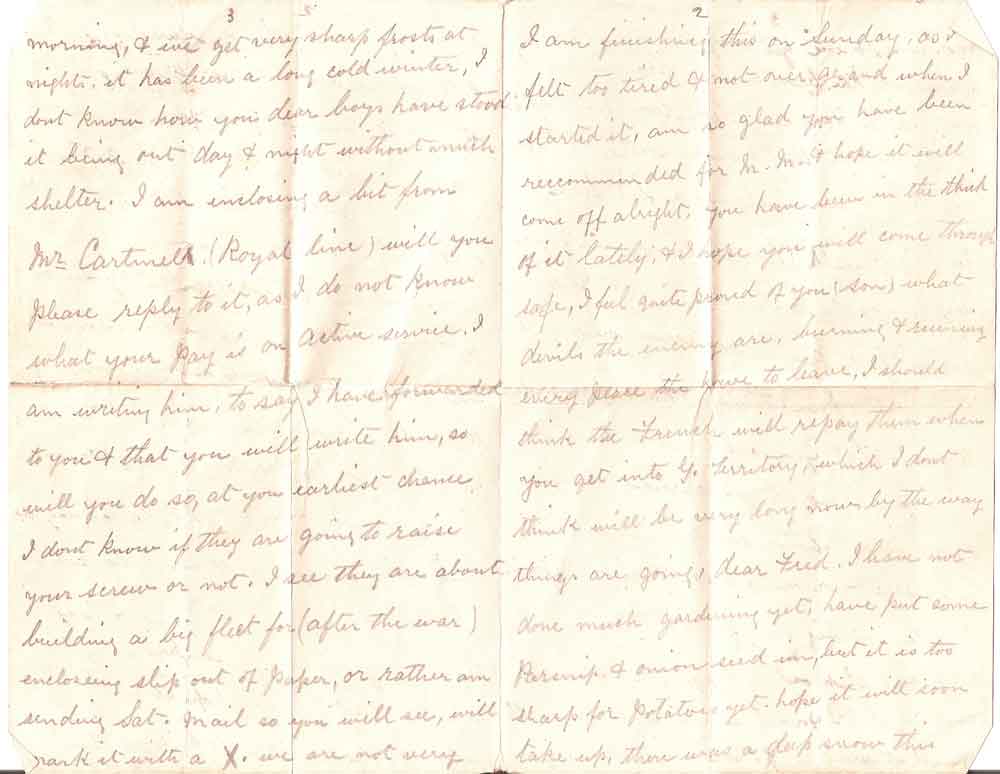 2
I am finishing this on Sunday, as I
felt too tired & not over grand when I
started it, am so glad you have been
reccommended for M. M. & hope it will
come off alright, you have been in the thick
of it lately, & I hope you will come through
safe, I feel quite proud of you (son) what
devils the enemy are, burning & ruining
every place they have to leave, I should
think the French will repay them when
you get into G. Territory, which I dont
think will be very long now by the way
things are going, dear Fred. I have not
done much gardening yet, have put some
Parsnip. & onion seed in, but it is too
sharp for Potatoes yet. hope it will soon
take up, there was a deep snow this
3 5
morning, & we get very sharp frosts at
nights. it has been a long cold winter, I
dont know how you dear boys have stood
it being out day & night without much
shelter. I am enclosing a bit from
Mr Cartmell. (Royal line) will you
please reply to it, as I do not know
what your Pay is on active service. I
am writing him, to say I have forwarded
to you & that you will write him, so
will you do so, at your earliest chance
I dont know if they are going to raise
your screw or not. I see they are about
building a big fleet for (after the war)
encloseing slip out of Paper, or rather am
sending Sat. mail so you will see, will
mark it with a X. we are not very